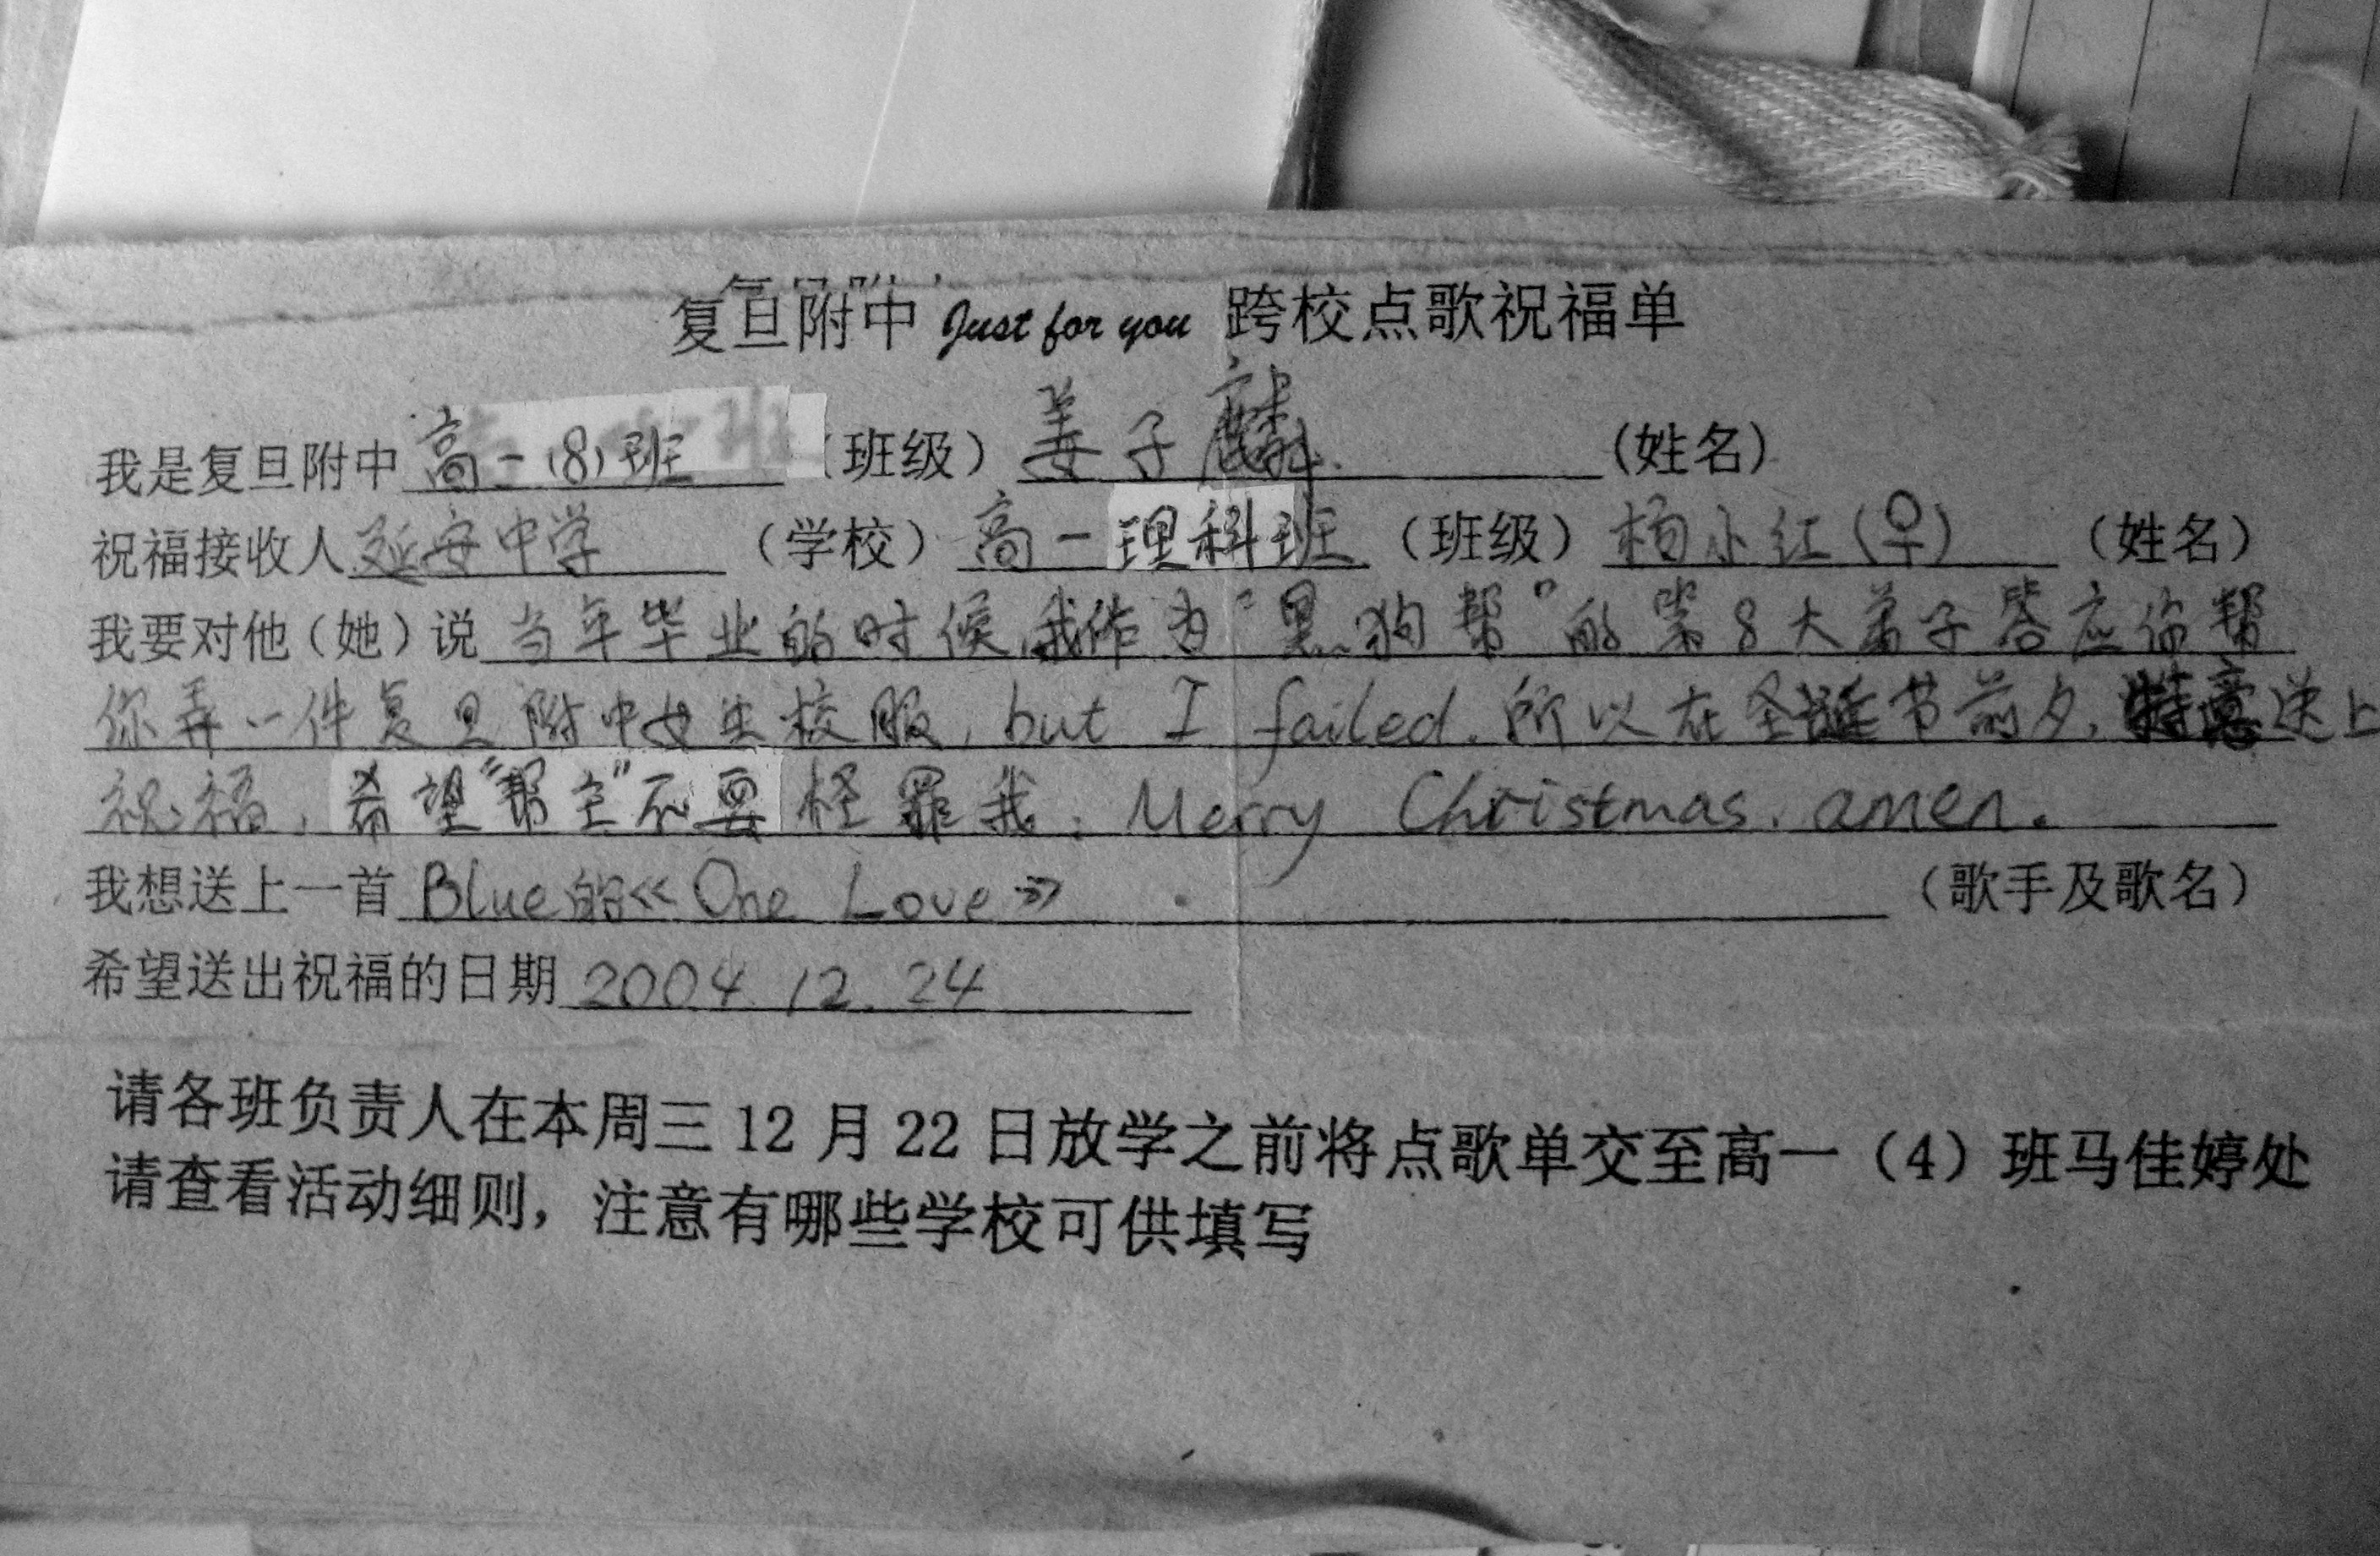 复旦附中 Just for you 跨校点歌祝福单
我是复旦附中高一(8)班（班级）姜子麟（姓名）
祝福接收人延安中学（学校）高一理科班（班级）杨小红(♀)（姓名）
我要对他（她）说当年毕业的时候,我作为“黑狗帮”的第8大弟子答应你帮
你弄一件复旦附中女生校服, but I failed. 所以在圣诞节前夕, 特意送上
祝福, 希望“帮主”不要怪罪我. Merry Christmas. amen.
我想送上一首Blue的《One Love》（歌手及歌名）
希望送出祝福的日期2004.12.24
请各班负责人在本周三12月22日放学之前将点歌单交至高一（4）班马佳婷处
请查看活动细则，注意有哪些学校可供填写